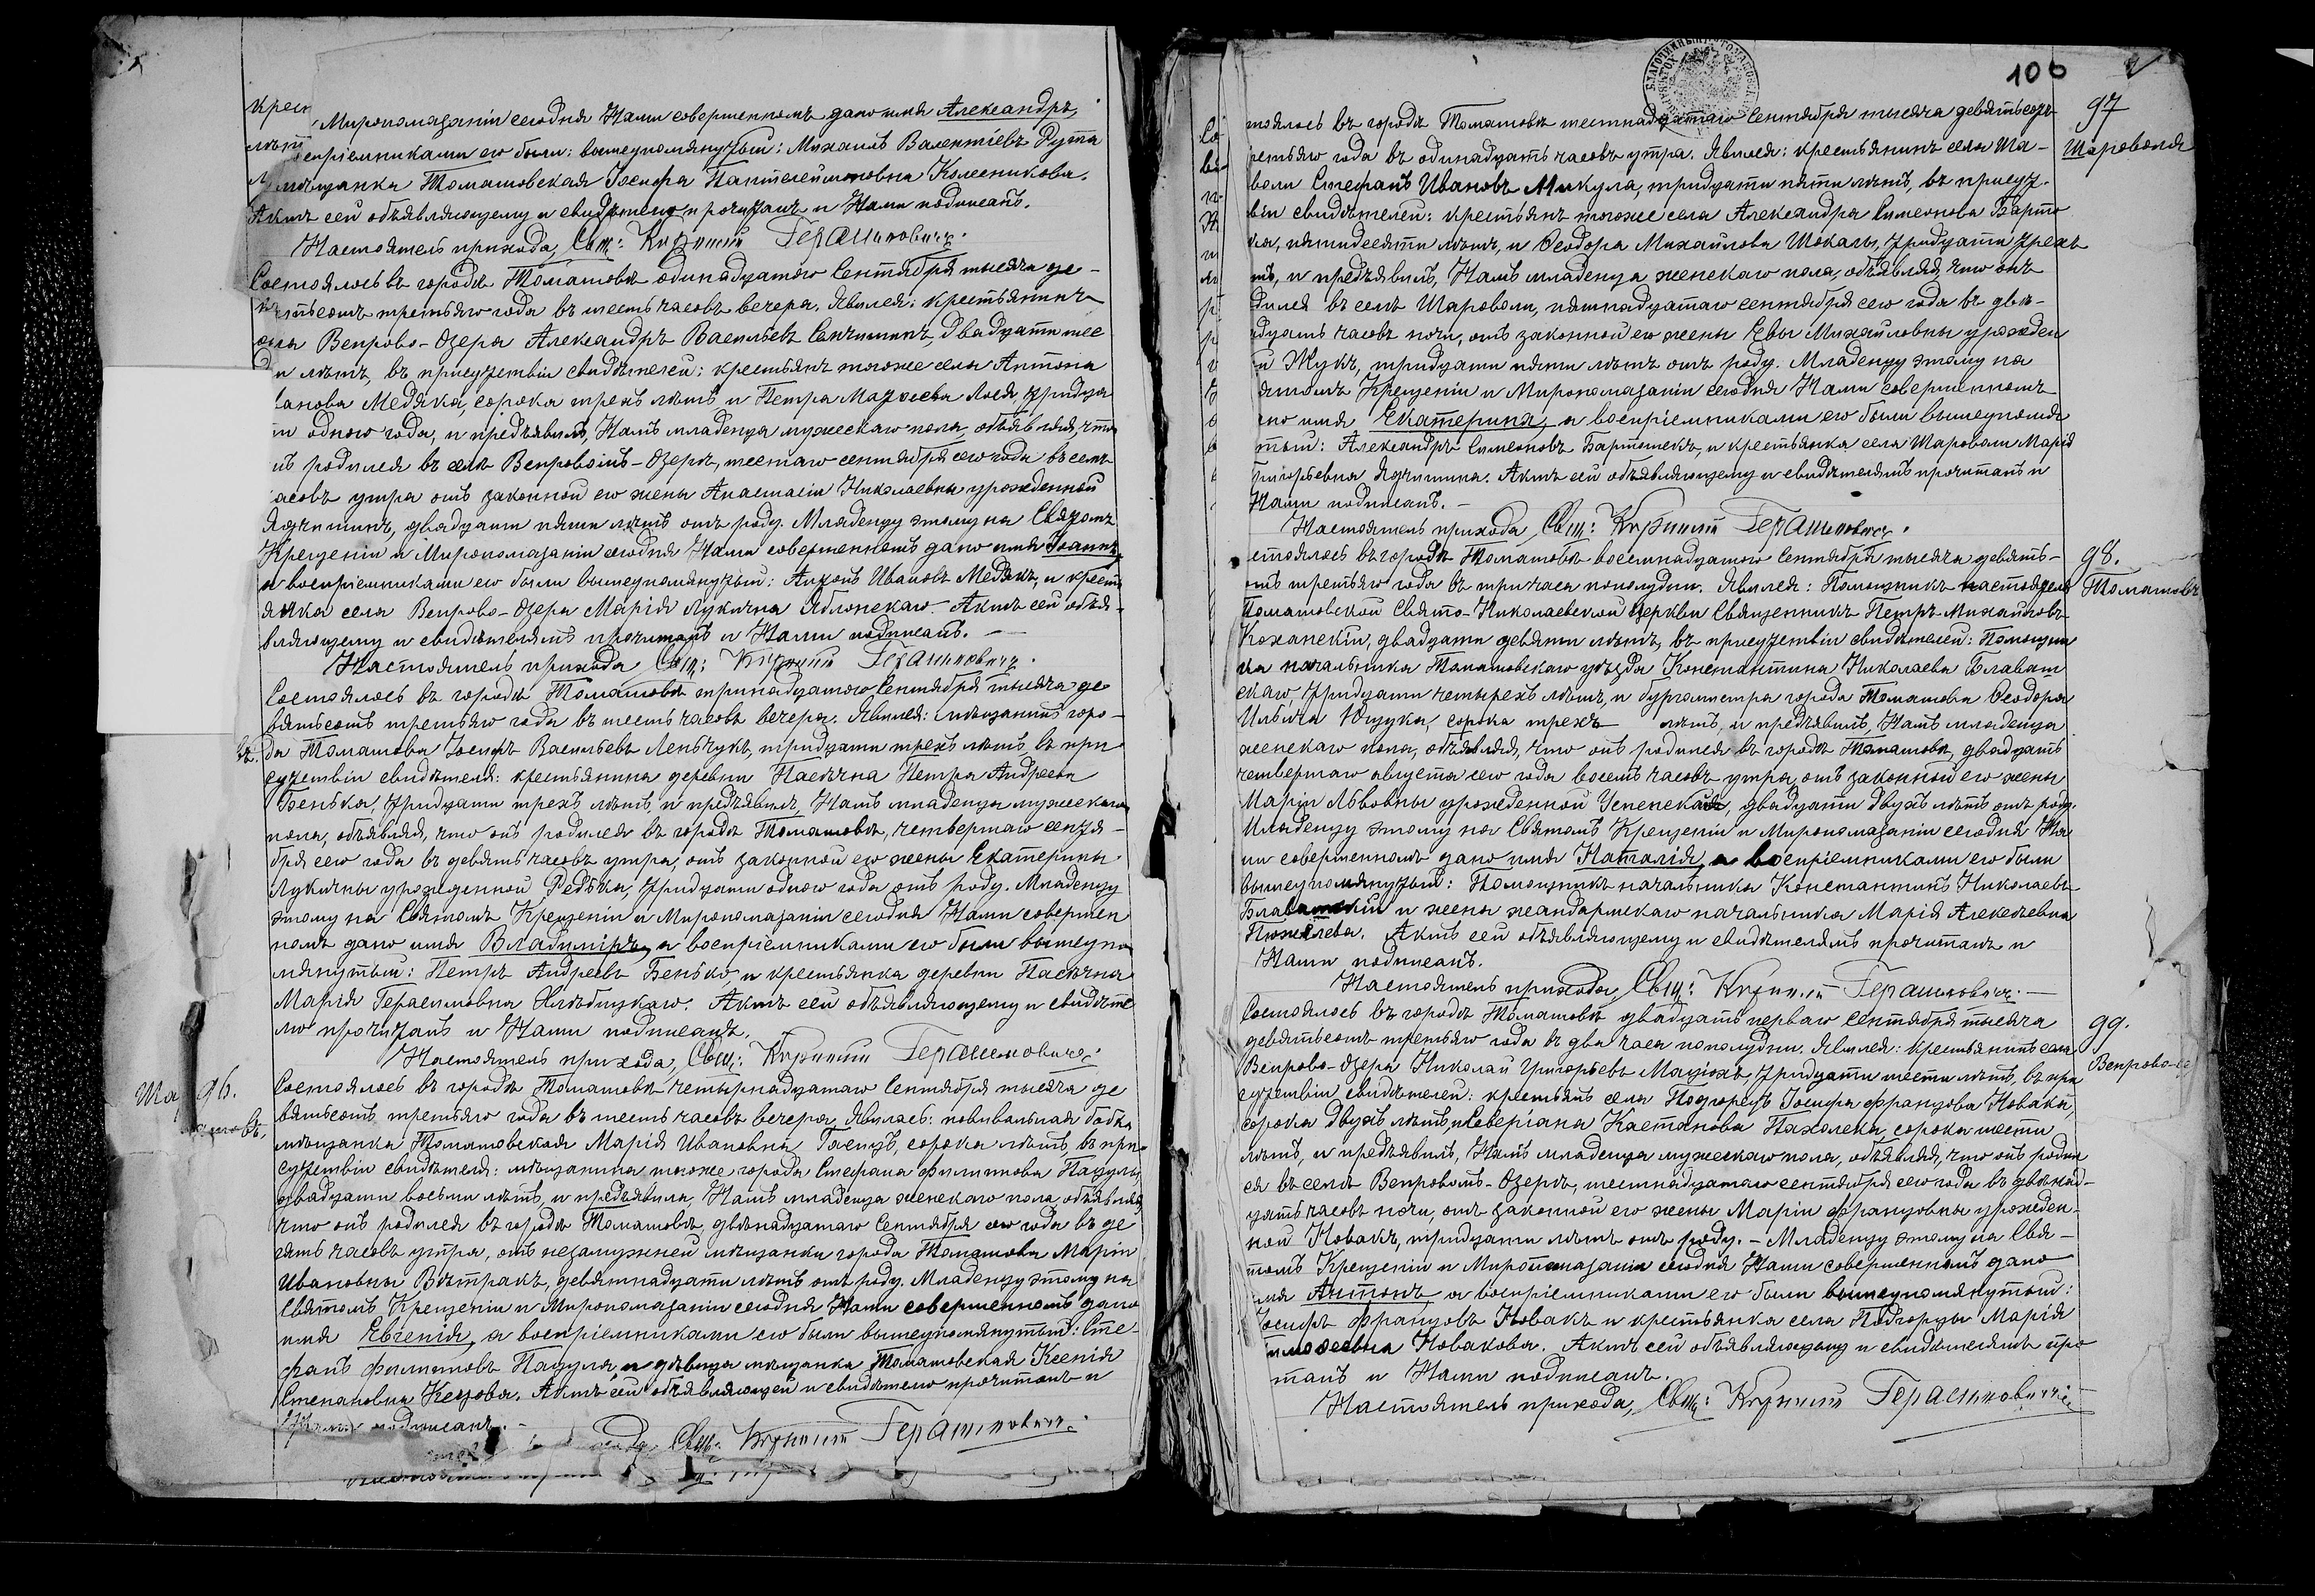 Миропомазаніи сегодня Нами совершенномъ дано имя Александръ,
воспріемниками его были: вышеупомянутый: Михаилъ Валентіевъ Рута
мѣщанка Томашовская Іосифа Пантелеймоновна Колесникова.
Актъ сей объявляющему и свидѣтелю прочитанъ и Нами подписанъ.
Настоятель прихода, Свщ: Кириллъ Герашковичъ.
Состоялось въ городѣ Томашовѣ одинадцатого Сентября тысяча де-
вятьсотъ третьяго года въ шесть часовъ вечера. Явился: крестьянинъ
села Вепрово-Озера Александръ Васильевъ Сенчишинъ, двадцати шес
ти лѣтъ, въ присутствіи свидѣтелей: крестьянъ тогоже села Антона
Иванова Медяка, сорока трехъ лѣтъ и Петра Матѳеева Лося, тридца
ти одного года, и предъявилъ, Намъ младенца мужескаго пола, объявляя, что
онъ родился въ селѣ Вепровомъ-Озерѣ, шестаго сентября сего года въ семь
часовъ утра отъ законной его жены Анастасіи Николаевны урожденной
Ядчишинъ, двадцати пяти лѣтъ отъ роду. Младенцу этому на Святомъ
Крещеніи и Миропомазаніи сегодня Нами совершенномъ дано имя Іоаннъ,
а воспріемниками его были вышеупомянутый: Антонъ Ивановъ Медякъ, и крестъ
янка села Вепрово-Озера Марія Лукична Яблонскаго. Актъ сей объя-
вляющему и свидѣтелямъ прочитанъ и Нами подписанъ. —
Настоятель прихода Свщ: Кириллъ Герашковичъ.
Состоялось въ городѣ Томашовѣ тринадцатого Сентября тысяча де
вятьсотъ третьяго года въ шесть часовъ вечера. Явился: мѣщанинъ горо-
да Томашова Іосифъ Васильевъ Леньчукъ, тридцати трехъ лѣтъ, въ при
сутствіи свидѣтеля: крестьянина деревни Пасѣчна Петра Андреева
Бенька, тридцати трехъ лѣтъ, и предъявилъ, Намъ младенца мужескаго
пола, объявляя, что онъ родился въ городѣ Томашовѣ, четвертаго сентя-
бря сего года въ девять часовъ утра, отъ законной его жены Екатерины
Лукичны урожденной Редька, тридцати одного года отъ роду. Младенцу
этому на Святомъ Крещеніи и Миропомазаніи сегодня Нами совершен
номъ дано имя Владиміръ, а воспріемниками его были вышеупо
мянутый: Петръ Андреевъ Бенько, и крестьянка деревни Пасѣчна
Марія Герасимовна Актъ сей объявляющему и свидѣте
лю прочитанъ и Нами подписанъ.
Настоятель прихода, Свщ: Кириллъ Герашковичъ.
96.
Состоялось въ городѣ Томашовѣ четырнадцатаго Сентября тысяча де
вятьсотъ третьяго года въ шесть часовъ вечера. Явилась: повивальная бабка
мѣщанка Томашовская Марія Ивановна сорока лѣтъ, въ при-
сутствіи свидѣтеля: мѣщанина тогоже города Стефана Филиппова Пацулы,
двадцати восьми лѣтъ, и предъявила, Намъ младенца женскаго пола, объявляя,
что онъ родился въ городѣ Томашовѣ, двѣнадцатаго Сентября сего года въ де
вять часовъ утра, отъ незамужней мѣщанки города Томашова Маріи
Ивановны Вѣтракъ, девятнадцати лѣтъ отъ роду. Младенцу этому на
Святомъ Крещеніи и Миропомазаніи сегодня Нами совершенномъ дано
имя Евгенія, а воспріемниками его были вышеупомянутый: Сте-
фанъ Филипповъ Пацула, и дѣвица мѣщанка Томашовская Ксенія
Степановна Кецова. Актъ сей объявляющей и свидѣтелю прочитанъ и
Нами подписанъ. —
Свщ: Кириллъ Герашковичъ.
106
97
Шароволя
тоялось въ городѣ Томашовѣ шестнадцатаго Сентября тысяча девятьсотъ
третьяго года въ одинадцать часовъ утра. Явился: крестьянинъ села Ша-
воли Стефанъ Ивановъ Микула, тридцати пяти лѣтъ, въ присут-
віи свидѣтелей: крестьянъ тогоже села Александра Симеонова Барто
ка, пятидесяти лѣтъ, и Ѳеодора Михайлова Шокалы, тридцати трехъ
тъ, и предъявилъ, Намъ младенца женскаго пола, объявляя, что онъ
дился въ селѣ Шароволи, пятнадцатаго сентября сего года въ двѣ-
адцать часовъ ночи, отъ законной его жены Евы Михайловны урожден
й Жукъ, тридцати пяти лѣтъ отъ роду. Младенцу этому на
ятомъ Крещеніи и Миропомазаніи сегодня Нами совершенномъ
но имя Екатерина, а воспріемниками его были вышеупомя
тый: Александръ Симеоновъ Бартошекъ, и крестьянка села Шароволи Марія
Григорьевна Ядчишина. Актъ сей объявляющему и свидѣтелямъ прочитанъ и
Нами подписанъ. —
Настоятель прихода Свщ: Кириллъ Герашковичъ.
98.
Томашовъ
стоялось въ городѣ Томашовѣ восемнадцатаго Сентября тысяча девять-
отъ третьяго года въ три часа пополудни. Явился: Помощникъ настоятеля
Томашовской Свято-Николаевской Церкви Священникъ Петръ Михайловъ
Коханскій, двадцати девяти лѣтъ, въ присутствіи свидѣтелей: Помощни
ка начальника Томашовскаго уѣзда Константина Николаева Блават
скаго, тридцати четырехъ лѣтъ, и бургомистра города Томашова Ѳеодора
Ильича Ющука, сорока трехъ лѣтъ, и предъявилъ, Намъ младенца
женскаго пола, объявляя, что онъ родился въ городѣ Томашовѣ, двадцать
четвертаго августа сего года восемь часовъ утра, отъ законной его жены
Маріи Львовны урожденной Успенской, двадцати двухъ лѣтъ отъ роду.
Младенцу этому на Святомъ Крещеніи и Миропомазаніи сегодня На
ми совершенномъ дано имя Наталія, а воспріемниками его были
вышеупомянутый: Помощникъ начальника Константинъ Николаевъ
Блаватскій и жена жандармскаго начальника Марія Алексѣевна
Актъ сей объявляющему и свидѣтелямъ прочитанъ и
Нами подписанъ.
Настоятель прихода, Свщ: Кириллъ Герашковичъ. —
99.
Состоялось въ городѣ Томашовѣ двадцать перваго Сентября тысяча
девятьсотъ третьяго года въ два часа пополудни. Явился: Крестьянинъ села
Вепрово-Озера Николай Григорьевъ Мацюхъ, тридцати шести лѣтъ, въ при
сутствіи свидѣтелей: крестьянъ села Подгорецъ Іосифа Францова Новака,
сорока двухъ лѣтъ и Северіана Кастанова Нахолека, сорока шести
лѣтъ, и предъявилъ, Намъ младенца мужескаго пола, объявляя, что онъ родил
ся въ селѣ Вепровомъ-Озерѣ, шестнадцатаго сентября сего года въ двѣнад-
цать часовъ ночи, отъ законной его жены Маріи Францовны урожден-
ной Новакъ, тридцати лѣтъ отъ роду. — Младенцу этому на Свя-
томъ Крещеніи и Миропомазаніи сегодня Нами совершенномъ дано
имя Антонъ а воспріемниками его были вышеупомянутый:
Іосифъ Францовъ Новакъ и крестьянка села Подгорцы Марія
Новакова. Актъ сей объявляющему и свидѣтелямъ про
танъ и Нами подписанъ.
Настоятель прихода, Свщ: Кириллъ Герашковичъ.